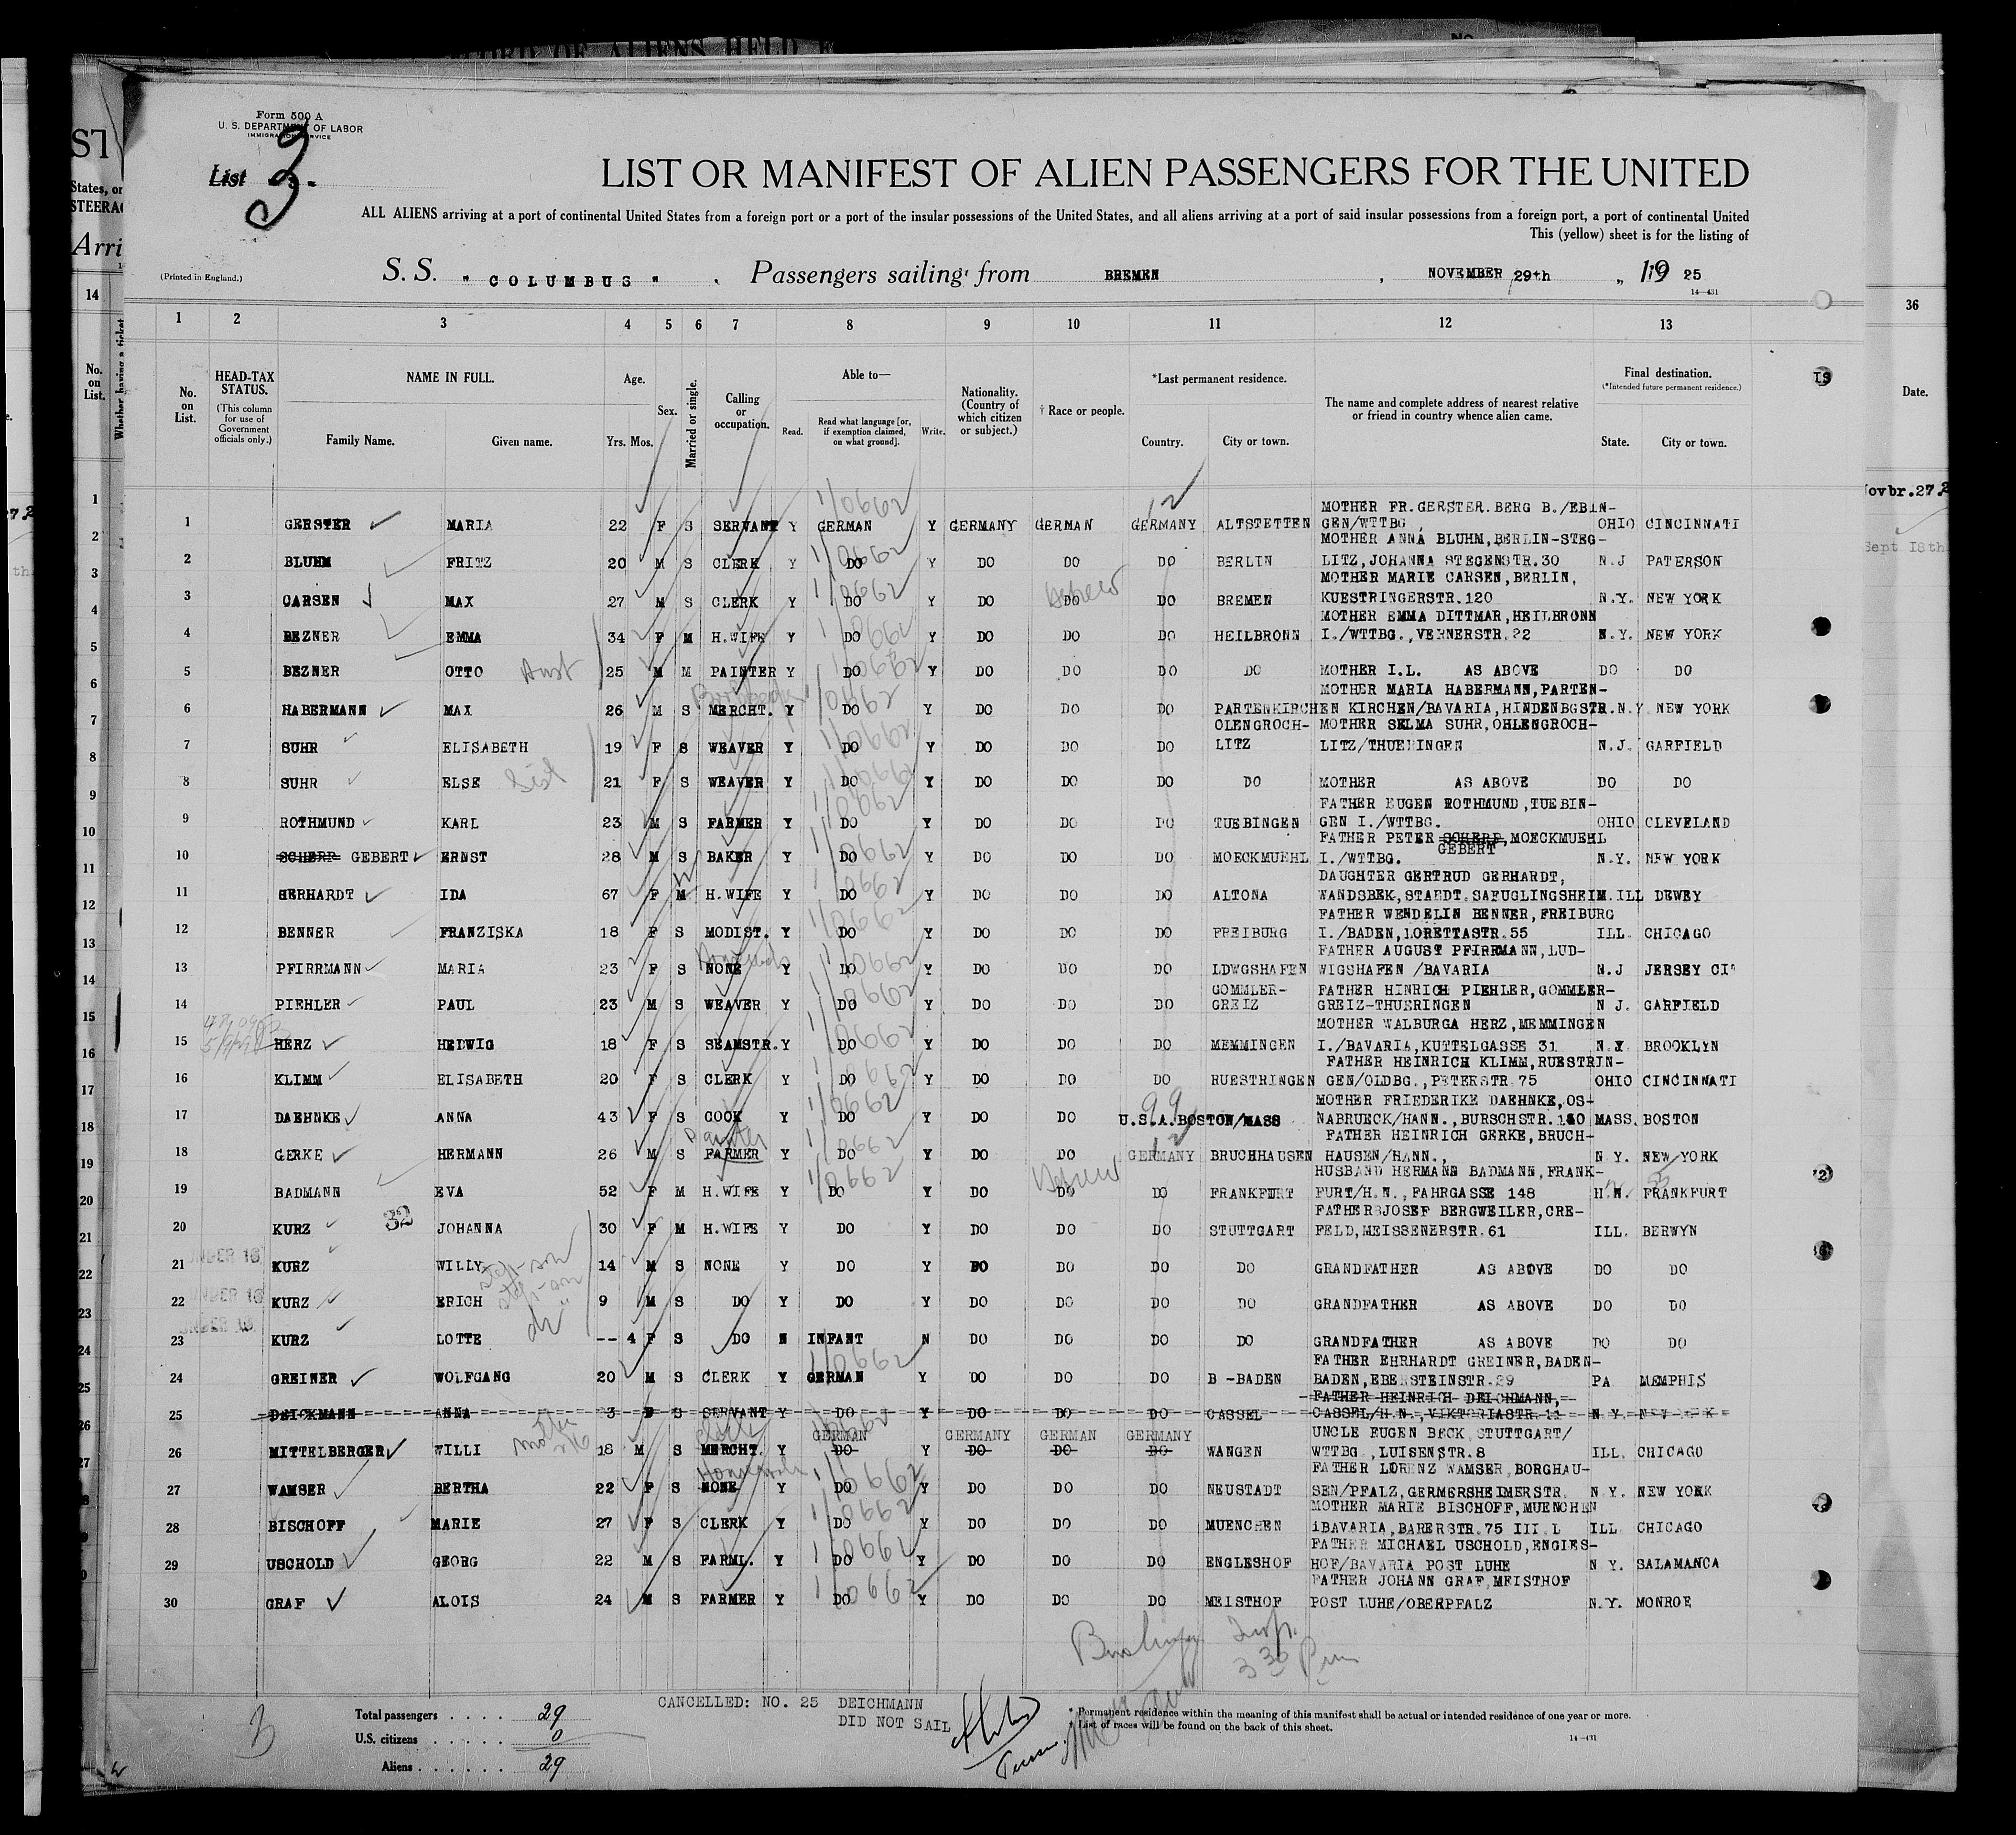 RD OF ALIENS HELD F
No.
Form 500 A
U. S. DEPARTMENT OF LABOR
IMMIGRATION SERVICE
List 3.
LIST OR MANIFEST OF ALIEN PASSENGERS FOR THE UNITED
ALL ALIENS arriving at a port of continental United States from a foreign port or a port of the insular possessions of the United States, and all aliens arriving at a port of said insular possessions from a foreign port, a port of continental United
This (yellow) sheet is for the listing of
(Printed in England.)
S. S. " COLUMBUS " , Passengers sailing from BREMEN , NOVEMBER 29th „ 19 25
14—431
1 2 3 4 5 6 7 8 9 10 11 12 13
No. on List. HEAD-TAX STATUS. (This column for use of Government officials only.) NAME IN FULL. Family Name. Given name. Age. Yrs. Mos. Sex. Married or single. Calling or occupation. Able to— Read. Read what language [or, if exemption claimed, on what ground]. Write. Nationality. (Country of which citizen or subject.) † Race or people. *Last permanent residence. Country. City or town. The name and complete address of nearest relative or friend in country whence alien came. Final destination. (*Intended future permanent residence.) State. City or town.
MOTHER FR.GERSTER.BERG B./EBIN-
1 GERSTER MARIA 22 F S SERVANT Y GERMAN Y GERMANY GERMAN GERMANY ALTSTETTEN GEN/WTTBG, OHIO CINCINNATI
MOTHER ANNA BLUHM,BERLIN-STEG-
2 BLUHM FRITZ 20 M S CLERK Y DO Y DO DO DO BERLIN LITZ,JOHANNA STEGENSTR.30 N.J PATERSON
MOTHER MARIE CARSEN,BERLIN,
3 CARSEN MAX 27 M S CLERK Y DO Y DO DO Hebrew DO BREMEN KUESTRINGERSTR.120 N.Y. NEW YORK
MOTHER EMMA DITTMAR,HEILBRONN
4 BEZNER EMMA 34 F M H.WIFE Y DO Y DO DO DO HEILBRONN I./WTTBG.,VERNERSTR.22 N.Y. NEW YORK
5 BEZNER OTTO 25 M M PAINTER Y DO Y DO DO DO DO MOTHER I.L. AS ABOVE DO DO
MOTHER MARIA HABERMANN,PARTEN-
6 HABERMANN MAX 26 M S MERCHT. Y DO Y DO DO DO PARTENKIRCHEN KIRCHEN/BAVARIA,HINDENBGSTR.N.Y. NEW YORK
OLENGROCH- MOTHER SELMA SUHR,OHLENGROCH-
7 SUHR ELISABETH 19 F S WEAVER Y DO Y DO DO DO LITZ LITZ/THUERINGEN N.J. GARFIELD
8 SUHR ELSE 21 F S WEAVER Y DO Y DO DO DO DO MOTHER AS ABOVE DO DO
FATHER EUGEN ROTHMUND,TUEBIN-
9 ROTHMUND KARL 23 M S FARMER Y DO Y DO DO DO TUEBINGEN GEN I./WTTBG. OHIO CLEVELAND
FATHER PETER SCHERP GEBERT,MOECKMUEHL
10 SCHERP GEBERT ERNST 28 M S BAKER Y DO Y DO DO DO MOECKMUEHL I./WTTBG. N.Y. NEW YORK
DAUGHTER GERTRUD GERHARDT,
11 GERHARDT IDA 67 F M H.WIFE Y DO Y DO DO DO ALTONA WANDSBEK,STAEDT.SAEUGLINGSHEIM.ILL DEWEY
FATHER WENDELIN BENNER,FREIBURG
12 BENNER FRANZISKA 18 F S MODIST. Y DO Y DO DO DO FREIBURG I./BADEN,LORETTASTR.55 ILL. CHICAGO
FATHER AUGUST PFIRRMANN,LUD-
13 PFIRRMANN MARIA 23 F S NONE Y DO Y DO DO DO LDWGSHAFEN WIGSHAFEN /BAVARIA N.J JERSEY CI
GOMMLER- FATHER HINRICH PIEHLER,GOMMLER-
14 PIEHLER PAUL 23 M S WEAVER Y DO Y DO DO DO GREIZ GREIZ-THUERINGEN N J. GARFIELD
MOTHER WALBURGA HERZ,MEMMINGEN
15 HERZ HEDWIG 18 F S SEAMSTR. Y DO Y DO DO DO MEMMINGEN I./BAVARIA,KUTTELGASSE 31 N.Y. BROOKLYN
FATHER HEINRICH KLIMM,RUESTRIN-
16 KLIMM ELISABETH 20 F S CLERK Y DO Y DO DO DO RUESTRINGEN GEN/OLDBG.,PETERSTR.75 OHIO CINCINNATI
MOTHER FRIEDERIKE DAEHNKE,OS-
17 DAEHNKE ANNA 43 F S COOK Y DO Y DO DO U.S.A.BOSTON/MASS NABRUECK/HANN.,BURSCHSTR.150 MASS. BOSTON
FATHER HEINRICH GERKE,BRUCH-
18 GERKE HERMANN 26 M S FARMER Painter Y DO Y DO DO GERMANY BRUCHHAUSEN HAUSEN/HANN., N Y. NEW YORK
HUSBAND HERMANN BADMANN,FRANK-
19 BADMANN EVA 52 F M H.WIFE Y DO Y DO DO Hebrew DO FRANKFURT FURT/H.N.,FAHRGASSE 148 H.N. FRANKFURT
FATHER:JOSEF BERGWEILER,CRE-
20 KURZ 32 JOHANNA 30 F M H.WIFE Y DO Y DO DO DO STUTTGART FELD,MEISSENERSTR.61 ILL. BERWYN
21 KURZ WILLY step-son 14 M S NONE Y DO Y DO DO DO DO GRANDFATHER AS ABOVE DO DO
22 KURZ ERICH step-son 9 M S DO Y DO Y DO DO DO DO GRANDFATHER AS ABOVE DO DO
23 KURZ LOTTE -- 4 F S DO N INFANT N DO DO DO DO GRANDFATHER AS ABOVE DO DO
FATHER EHRHARDT GREINER,BADEN-
24 GREINER WOLFGANG 20 M S CLERK Y GERMAN Y DO DO DO B -BADEN BADEN,EBERSTEINSTR.29 PA MEMPHIS
FATHER HEINRICH DEICHMANN,
25 DEICKMANN ANNA 3 F S SERVANT Y DO Y DO DO DO CASSEL CASSEL/H N.,VIKTORIASTR 11 N Y. NEW YORK
GERMAN GERMANY GERMAN GERMANY UNCLE EUGEN BECK STUTTGART/
26 MITTELBERGER WILLI 18 M S MERCHT. Y DO Y DO DO DO WANGEN WTTBG ,LUISENSTR.8 ILL. CHICAGO
FATHER LORENZ WAMSER,BORGHAU-
27 WAMSER BERTHA 22 F S NONE Y DO Y DO DO DO NEUSTADT SEN/PFALZ,GERMERSHEIMERSTR. N Y. NEW YORK
MOTHER MARIE BISCHOFF,MUENCHEN
28 BISCHOFF MARIE 27 F S CLERK Y DO Y DO DO DO MUENCHEN iBAVARIA,BARERSTR.75 III L ILL CHICAGO
FATHER MICHAEL USCHOLD,ENGLES-
29 USCHOLD GEORG 22 M S FARML. Y DO Y DO DO DO ENGLESHOF HOF/BAVARIA POST LUHE N Y. SALAMANCA
FATHER JOHANN GRAF,MEISTHOF
30 GRAF ALOIS 24 M S FARMER Y DO Y DO DO DO MEISTHOF POST LUHE/OBERPFALZ N.Y. MONROE
Total passengers . . . . 29
U.S. citizens . . . . . 0
Aliens . . . . . . 29
CANCELLED: NO. 25 DEICHMANN
DID NOT SAIL
* Permanent residence within the meaning of this manifest shall be actual or intended residence of one year or more.
† List of races will be found on the back of this sheet.
14—431